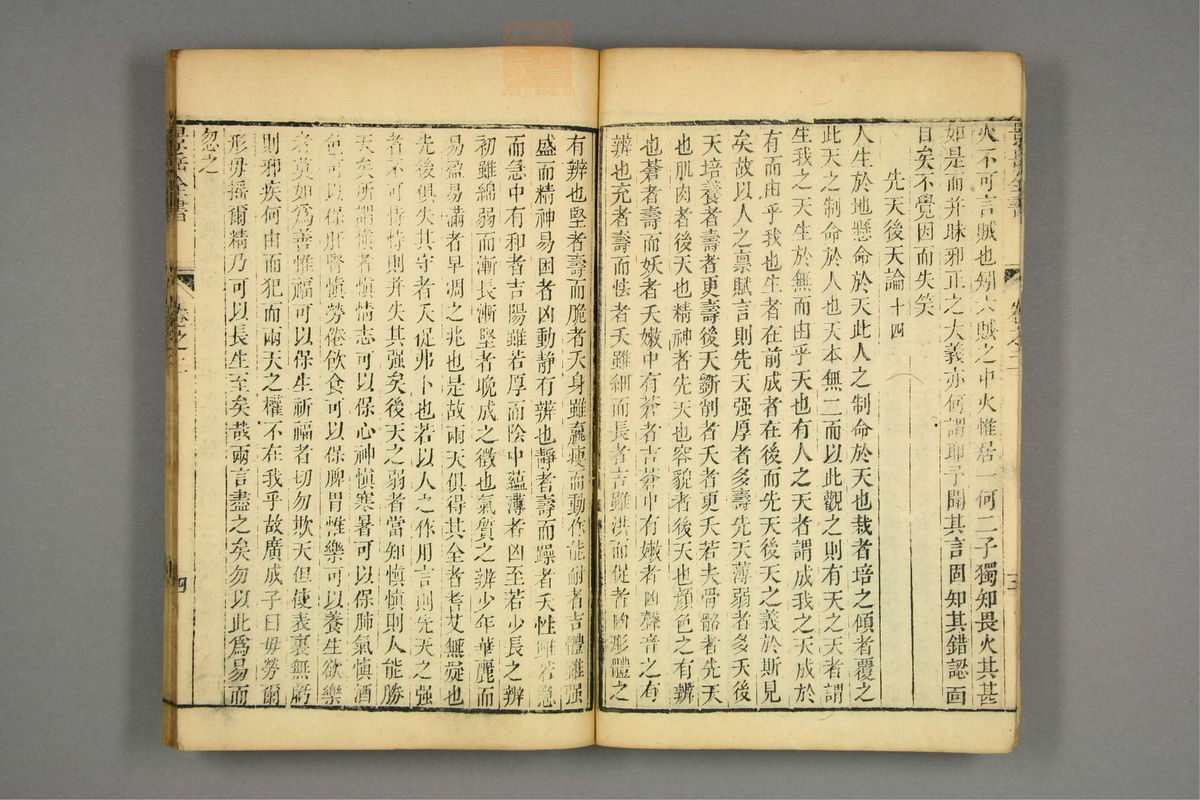 景岳全書
卷之二
火不可言賊也矧六賊之中火惟居一何二子獨知畏火其甚
如是而并昧邪正之大義亦何謂耶予聞其言固知其錯認面
目矣不覺因而失笑
先天後天論 十四
人生於地懸命於天此人之制命於天也栽者培之傾者覆之
此天之制命於人也天本無二而以此觀之則有天之天者謂
生我之天生於無而由乎天也有人之天者謂成我之天成於
有而由乎我也生者在前成者在後而先天後天之義於斯見
矣故以人之稟賦言則先天强厚者多壽先天薄弱者多夭後
天培養者壽者更壽後天斵削者夭者更夭若夫骨骼者先天
也肌肉者後天也精神者先天也容貌者後天也顔色之有辨
也蒼者壽而妖者夭嫩中有蒼者吉蒼中有嫩者凶聲音之有
辨也充者壽而怯者夭雖細而長者吉雖洪而促者凶形體之
有辨也堅者壽而脆者夭身雖羸瘦而動作能耐者吉體雖强
盛而精神易困者凶動靜有辨也靜者壽而躁者夭性雖若急
而急中有和者吉陽雖若厚而陰中蘊薄者凶至若少長之辨
初雖綿弱而漸長漸堅者晚成之徵也氣質之辨少年華麗而
易盈易滿者早凋之兆也是故兩天俱得其全者耆艾無疑也
先後俱失其守者夭促弗卜也若以人之作用言則先天之强
者不可恃恃則并失其强矣後天之弱者當知慎慎則人能勝
天矣所謂慎者慎情志可以保心神慎寒暑可以保肺氣慎酒
色可以保肝腎慎勞倦飲食可以保脾胃惟樂可以養生欲樂
者莫如為善惟福可以保生祈福者切勿欺天但使表裏無虧
則邪疾何由而犯而兩天之權不在我乎故廣成子曰毋勞爾
形毋搖爾精乃可以長生至矣哉兩言盡之矣勿以此爲易而
忽之
景岳全書
卷之二
四